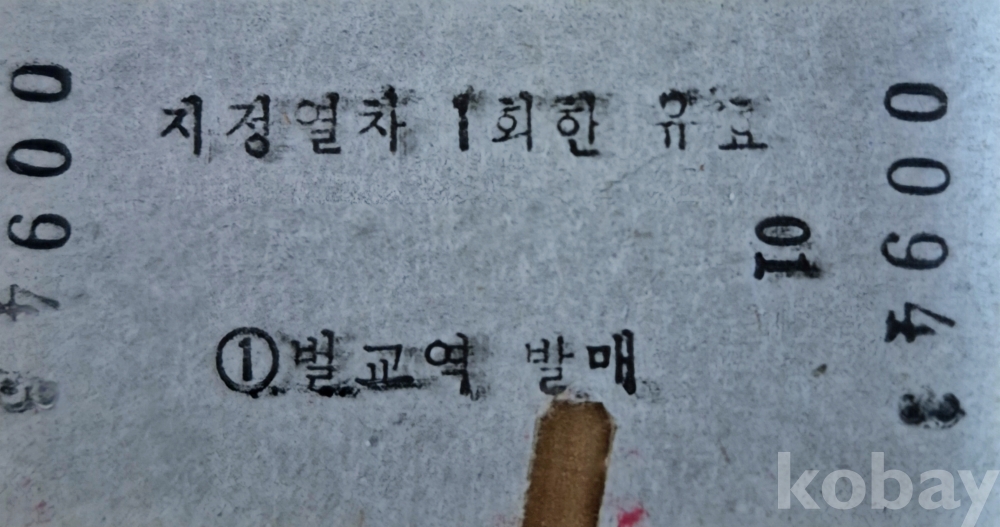 지정열차 1회한 유효
10
①벌교역 발매
0094
0094
kobay